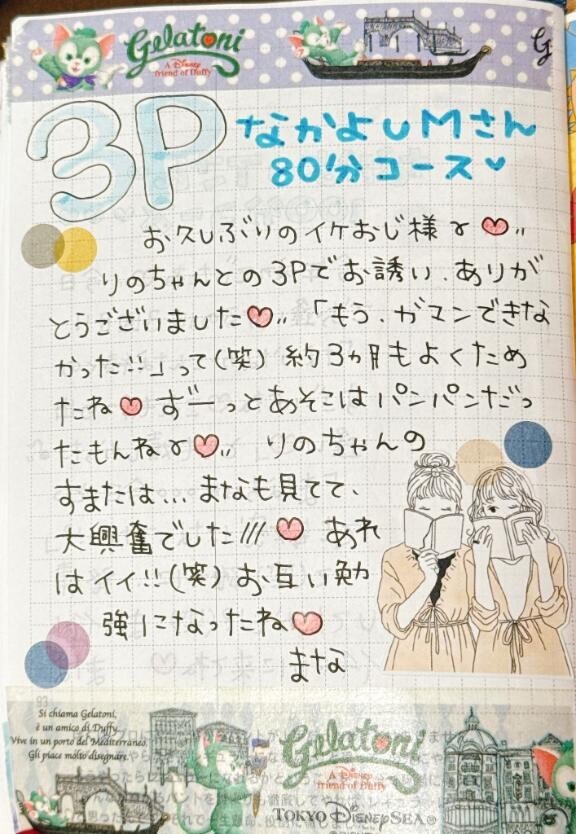 Gelatoni
A Disney
friend of Duffy
G
3P
なかよしMさん
80分コース♥
お久しぶりのイケおじ様♡♡!!
りのちゃんとの3Pでお誘い、ありが
とうございました♡!!「もう、ガマンできな
かった!!」って(笑) 約3ヵ月もよくため
たね♡ ずーっとあそこはパンパンだっ
たもんね♡♡!! りのちゃんの
すまたは…まなも見てて、
大興奮でした///♡ あれ
はイイ!!(笑) お互い勉
強になったね♡
まな
Si chiama Gelatoni,
è un amico di Duffy.
Vive in un porto del Mediterraneo.
Gli piace molto disegnare.
Gelatoni
A Disney
friend of Duffy
TOKYO DISNEYSEA